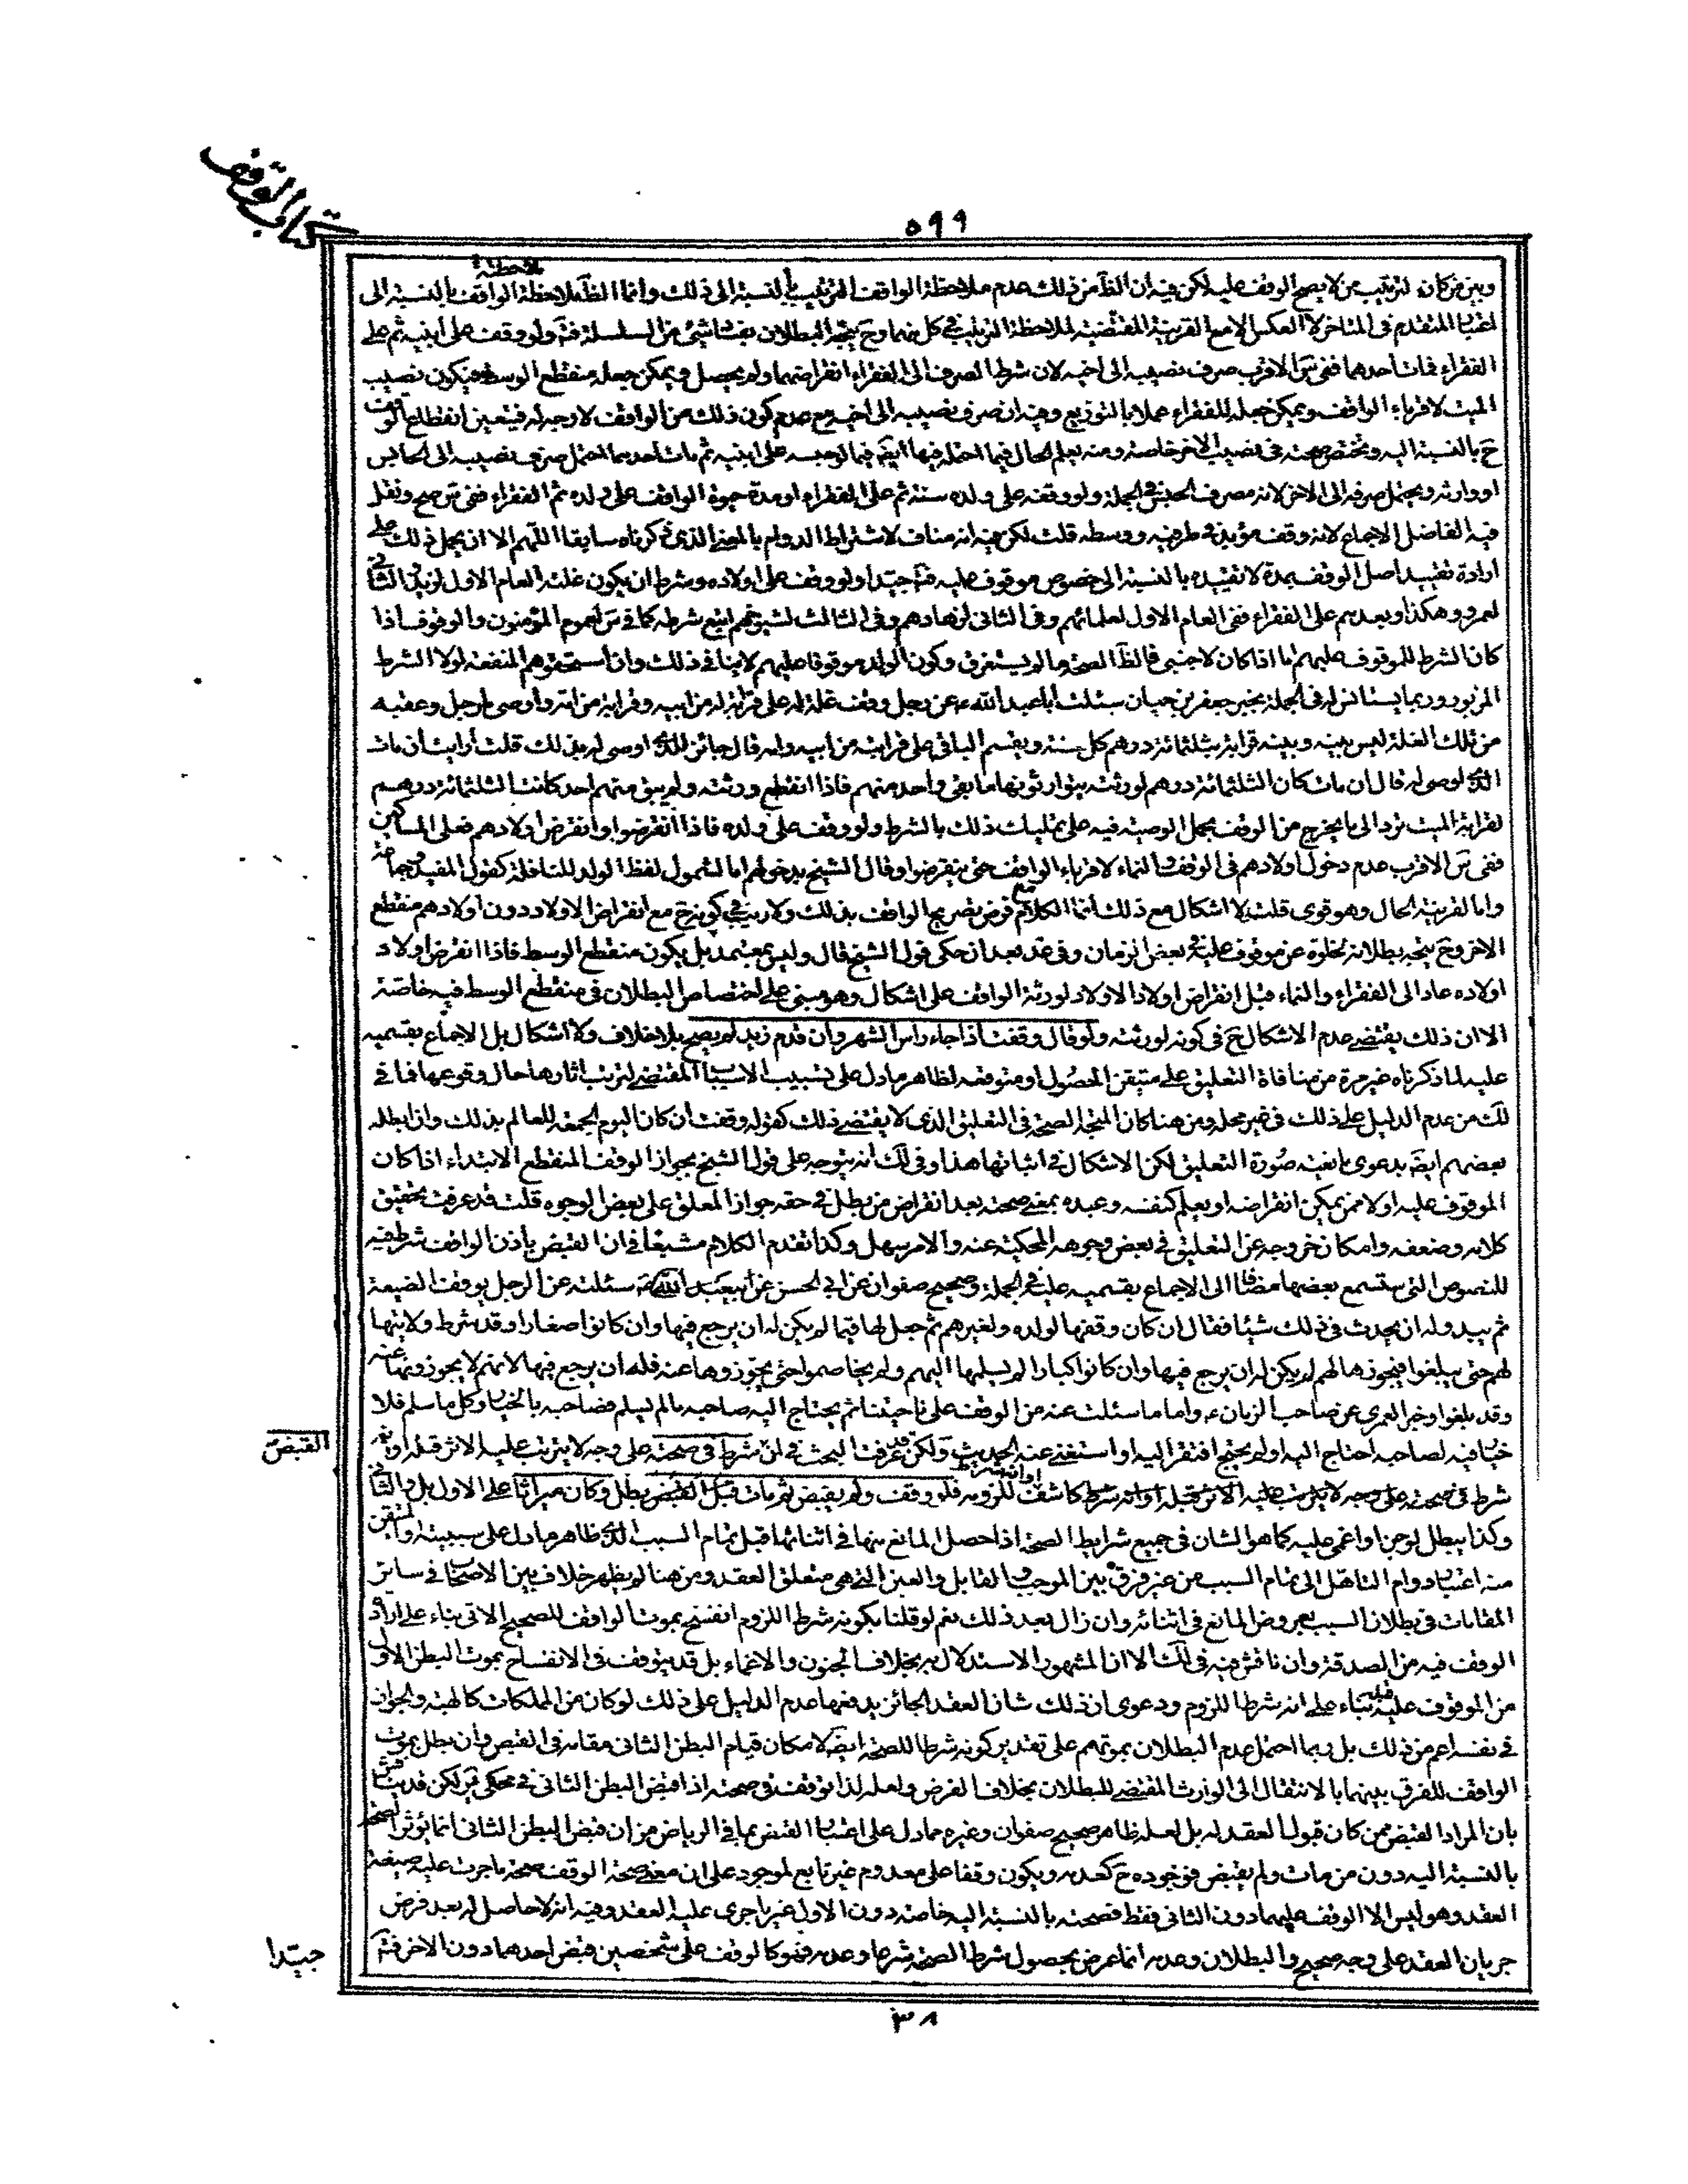 كتاب الوقف
٥٩٩
وبين من كان لترتيب من لا يصح الوقف عليه لكن فيه ان الظ من ذلك عدم ملاحظة الواقف الترتيب بالنسبة الى ذلك وانما الظ ملاحظة الواقف بالنسبة الى
اعتبار المتقدم فى المتاخر لا العكس الا مع القرينة المقتضية لملاحظة الترتيب فى كل منهما وح يتجه البطلان شئ من السلسلة فت ولو وقف على ابنيه ثم على
الفقراء فمات احدهما ففى س الاقرب صرف نصيبه الى اخيه لان شرط الصرف الى الفقراء انقراضهما ولم يحصل ويمكن جعله منقطع الوسط فيكون نصيب
الميت لاقرباء الواقف ويمكن جعله للفقراء عملا بالتوزيع وفيه ان صرف نصيبه الى اخيه مع عدم كون ذلك من الواقف لا وجه له فيتعين انقطاع الوقف
ح بالنسبة اليه وتختص صحته فى نصيب الاخر خاصة ومنه يعلم الحال فيما احتمله فيها ايضا فيما لو حبسه على ابنيه ثم مات احدهما احتمل صرف نصيبه الى الحابس
او وارثه ويحتمل صرفه الى الاخر لانه مصرف الحبس فى الجملة ولو وقفه على ولده سنة ثم على الفقراء او مدة حيوة الواقف على ولده ثم الفقراء ففى س صح ونقل
فيه الفاضل الاجماع لانه وقف مؤبد فى طرفيه ووسطه قلت لكن فيه انه مناف لاشتراط الدوام بالمعنى الذى ذكرناه سابقا اللهم الا ان يحمل ذلك على
ارادة تقييد اصل الوقف بمدة لا تقييده بالنسبة الى خصوص موقوف عليه فت جيدا ولو وقف على اولاده وشرط ان يكون غلته العام الاول لزيد والثانى
لعمرو وهكذا وبعدهم على الفقراء ففى العام الاول لعلمائهم وفى الثانى لزهادهم وفى الثالث لشيوخهم اتبع شرطه كما فى س لعموم المؤمنون والوقوف اذا
كان الشرط للموقوف عليهم اما اذا كان لاجنبى فالظ الصحة ما لو يستغرق وكون الولد موقوفا عليهم لا ينافى ذلك وان استحقوهم المنفعة لولا الشرط
المزبور وربما يستانس له فى الجملة بخبر جعفر بن حيان سئلت ابا عبد الله ع عن رجل وقف غلة له على قرابة له من ابيه وقرابة من امه واوصى لرجل وعقبه
من تلك الغلة ليس بينه وبينه قرابة بثلثمائة درهم كل سنة ويقسم الباقى على قرابته من ابيه وامه قال جائز للذى اوصى له بذلك قلت ارايت ان مات
الذى اوصى له قال ان مات كان الثلثمائة درهم لورثته يتوارثونها ما بقى واحد منهم فاذا انقطع ورثته ولم يبق منهم احد كانت الثلثمائة درهم
لقرابة الميت ترد الى ما يخرج من الوقف بحمل الوصية فيه على تمليك ذلك بالشرط ولو وقف على ولده فاذا انقرضوا وانقرض اولادهم فعلى المساكين
ففى س الاقرب عدم دخول اولادهم فى الوقف فالنماء لاقرباء الواقف حتى ينقرضوا وقال الشيخ بدخولهم اما لشمول لفظ الولد للنافلة كقول المفيد وجماعة
واما لقرينة الحال وهو قوى قلت لا اشكال مع ذلك انما الكلام مع فرض تصريح الواقف بذلك ولا ريب فى كونه ح مع انقراض الاولاد دون اولادهم منقطع
الاخر وح يتجه بطلانه لخلوه عن موقوف عليه فى بعض الزمان وفى عد بعد ان حكى قول الشيخ قال وليس بمعتمد بل يكون منقطع الوسط فاذا انقرض اولاد
اولاده عاد الى الفقراء والنماء قبل انقراض اولاد الاولاد لورثة الواقف على اشكال وهو مبنى على اختصاص البطلان فى منقطع الوسط فيه خاصة
الا ان ذلك يقتضى عدم الاشكال ح فى كونه لورثته ولو قال وقفت اذا جاء راس الشهر وان قدم زيد لم يصح بلا خلاف ولا اشكال بل الاجماع بقسميه
عليه لما ذكرناه غير مرة من منافاة التعليق على متيقن الحصول او متوقعه لظاهر ما دل على تسبيب الاسباب المقتضى لترتب اثارها حال وقوعها فما فى
لك من عدم الدليل على ذلك فى غير محله ومن هنا كان المتجه الصحة فى التعليق الذى لا يقتضى ذلك كقوله وقفت ان كان اليوم الجمعة للعالم بذلك وان ابطله
بعضهم ايضا بدعوى مانعية صورة التعليق لكن الاشكال فى اثباتها هذا وفى لك انه يتوجه على قول الشيخ بجواز الوقف المنقطع الابتداء اذا كان
الموقوف عليه اولا ممن يمكن انقراضه او يعلم كنفسه وعبده بمعنى صحته بعد انقراض من بطل فى حقه جواز المعلق على بعض الوجوه قلت قد عرفت تحقيق
كلامه وضعفه وامكان خروجه عن التعليق فى بعض وجوهه المحكية عنه والامر سهل وكذا تقدم الكلام مشبعا فى ان القبض باذن الواقف شرط فيه
للنصوص التى ستسمع بعضها مضافا الى الاجماع بقسميه عليه فى الجملة وصحيح صفوان عن ابى الحسن سئلته عن الرجل يوقف الضيعة
ثم يبدو له ان يحدث فى ذلك شيئا فقال ان كان وقفها لولده ولغيرهم ثم جعل لها قيما لم يكن له ان يرجع فيها وان كانوا صغارا وقد شرط ولايتها
لهم حتى يبلغوا فيحوزها لهم لم يكن له ان يرجع فيها وان كانوا كبارا لم يسلمها اليهم ولم يخاصموا حتى يحوزوها عنه فله ان يرجع فيها لانهم لا يحوزونها عنه
وقد بلغوا وخبر العمرى عن صاحب الزمان ع واما ما سئلت عنه من الوقف على ناحيتنا ثم يحتاج اليه صاحبه ما لم يسلم فصاحبه بالخيار وكل ما سلم فلا
خيار فيه لصاحبه احتاج اليه او لم يحتج افتقر اليه او استغنى عنه الحديث ولكن قد عرفت البحث فى انه شرط فى صحته على وجه لا يترتب عليه الاثر قبله او انه
القبض
شرط فى صحته على وجه لا يترتب عليه الاثر قبله او انه شرط كاشف للزومه فلو وقف ولم يقبض ثم مات قبل القبض بطل وكان ميراثا على الاول بل والثانى
وكذا يبطل لو جن او اغمى عليه كما هو الشان فى جميع شرايط الصحة اذا حصل المانع منها فى اثنائها قبل تمام السبب الذى ظاهر ما دل على سببيته والمتيقن
منه اعتبار دوام التاهل الى تمام السبب من غير فرق بين الموجب والقابل والعين التى هى متعلق العقد ومن هنا لم يظهر خلاف بين الاصحاب فى سائر
المقامات فى بطلان السبب بعروض المانع فى اثنائه وان زال بعد ذلك نعم لو قلنا بكونه شرط اللزوم انفسخ بموت الواقف للصحيح الاتى بناء على ارادة
الوقف فيه من الصدقة وان ناقش فيه فى لك الا ان المشهور الاستدلال به بخلاف الجنون والاغماء بل قد يتوقف فى الانفساخ بموت البطن الاول
من الموقوف عليه قبله بناء على انه شرط اللزوم ودعوى ان ذلك شان العقد الجائز يدفعها عدم الدليل على ذلك لو كان من المملكات كالهبة والجواز
فى نفسه اعم من ذلك بل ربما احتمل عدم البطلان بموتهم على تقدير كونه شرطا للصحة ايضا لامكان قيام البطن الثانى مقامه فى القبض وان بطل بموت
الواقف للفرق بينهما بالانتقال الى الوارث المقتضى للبطلان بخلاف الفرض ولعله لذا توقف فى صحته اذا قبض البطن الثانى فى محكى لكن قد يناقش
بان المراد القبض ممن كان قبول العقد له بل لعله ظاهر صحيح صفوان وغيره مما دل على اعتبار القبض بما فى الرياض من ان قبض البطن الثانى انما يؤثر الصحة
بالنسبة اليه دون من مات ولم يقبض فوجوده ح كعدمه ويكون وقفا على معدوم غير تابع لموجود على ان معنى صحة الوقف صحة ما جرت عليه صيغة
العقد وهو ليس الا الوقف عليهما دون الثانى فقط فصحته بالنسبة اليه خاصة دون الاول غير ما جرى عليه العقد وفيه انه لا حاصل له بعد فرض
جريان العقد على وجه صحيح والبطلان وعدمه انما عرض بحصول شرط الصحة شرعا وعدمه فهو كالوقف على شخصين قبض احدهما دون الاخر فت
جيدا
٣٨